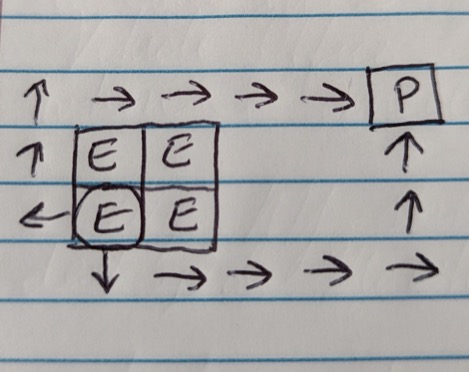 ↑ → → → → P
↑ E E ↑
← E E ↑
↓ → → → →